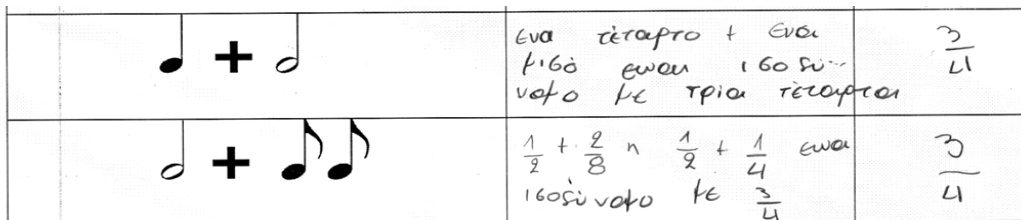 ενα τέταρτο + ενα
μισό ειναι ισοδύ-
ναμο με τρία τέταρτα
3/4
1/2 + 2/8 η 1/2 + 1/4 ειναι
ισοδύναμο με 3/4
3/4